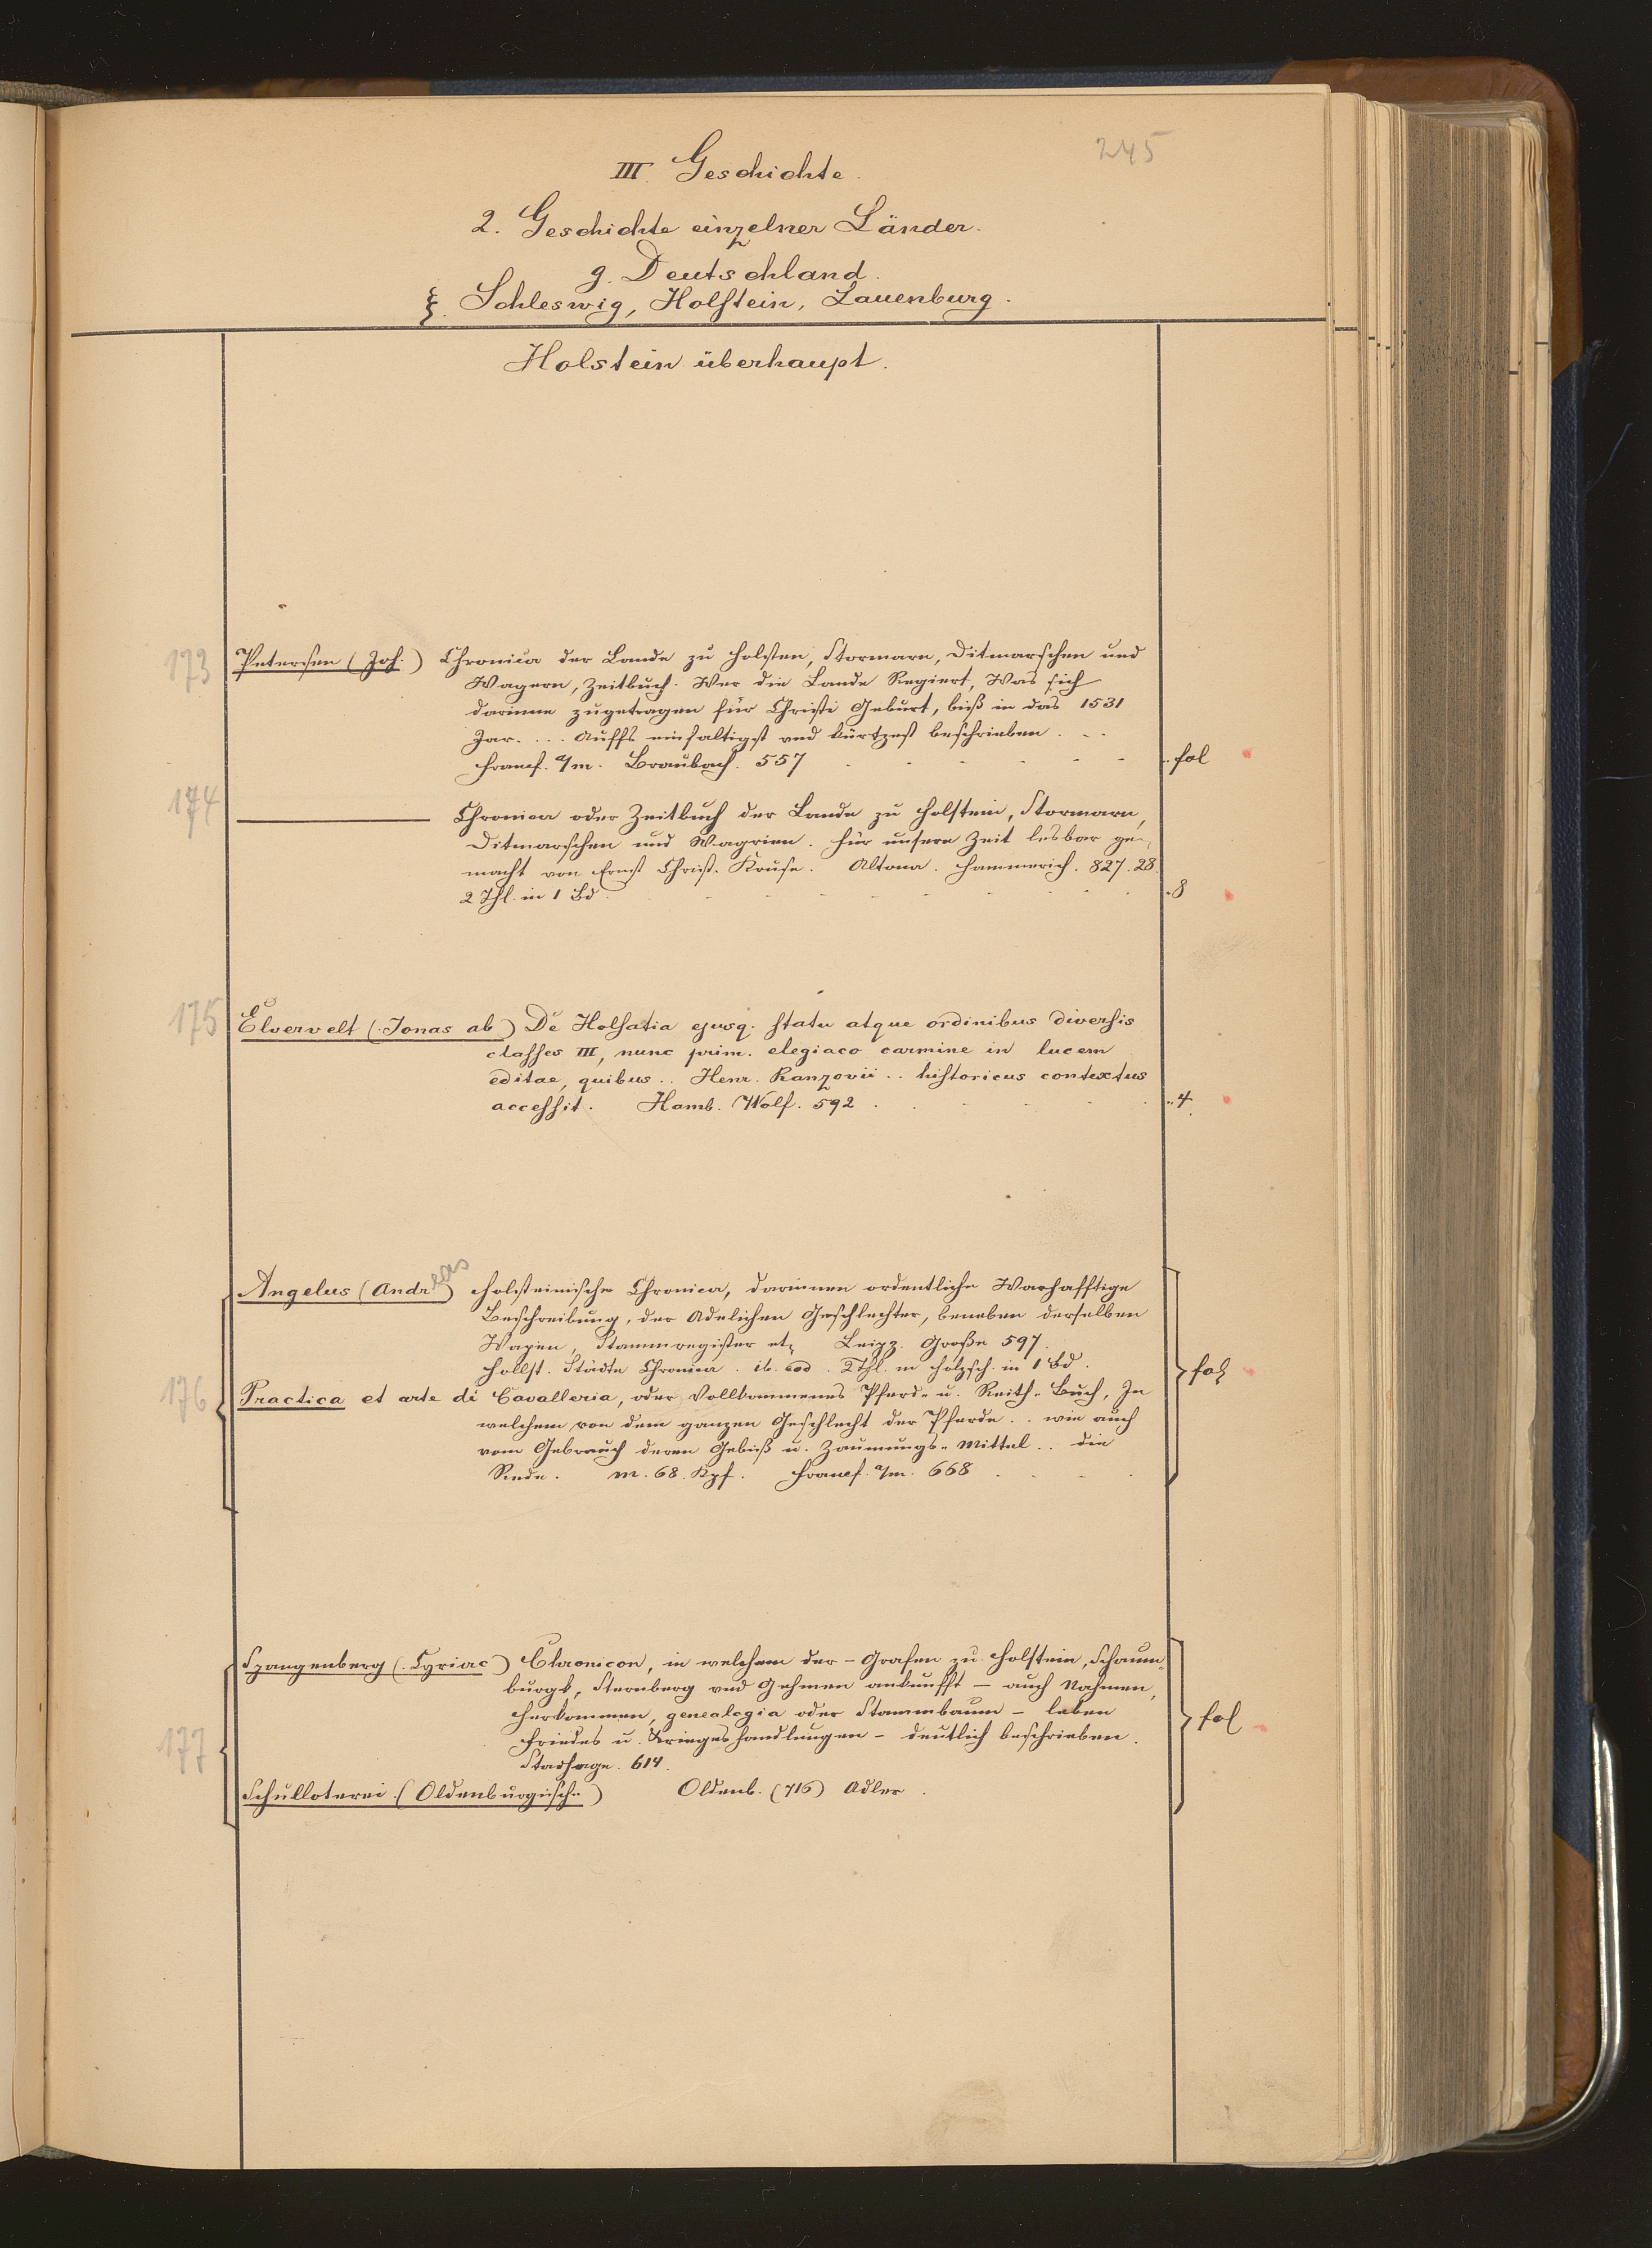 245
III. Geschichte.
2. Geschichte einzelner Länder.
g. Deutschland.
ξ. Schleswig, Holstein, Lauenburg.
Holstein überhaupt.
173 Petersen (Joh.) Chronica der Lande zu Holsten, Stormarn, Ditmarschen und
Wagern, Zeitbuch. Wer die Lande Regiert, Was sich
darinne zugetragen für Christi Geburt, biß in das 1531
Jar. ... Auffs einfaltigst vnd kürtzest beschrieben . . .
Francf. a/m. Braubach. 557 . . . . . . fol
174 ——— Chronica oder Zeitbuch der Lande zu Holstein, Stormarn,
Ditmarschen und Wagrien. Für unsere Zeit lesbar ge-
macht von Ernst Christ. Kruse. Altona. Hammerich. 827. 28.
2 Thl. in 1 Bd . . . . . . . . 8
175 Elvervelt (Jonas ab) De Holsatia ejusq. statu atque ordinibus diversis
classes III, nunc prim. elegiaco carmine in lucem
editae, quibus .. Henr. Ranzovii .. historicus contextus
accessit. Hamb. Wolf. 592 . . . . . . 4
Angelus (Andreas) Holsteinische Chronica, darinnen ordentliche Warhafftige
Beschreibung, der Adelichen Geschlechter, beneben derselben
Wapen, Stammregister etz Leipz. Große 597.
Hollst. Städte Chronica. ib. eod. 2 Thl. m Holzsch. in 1 Bd. fol
176 Practica et arte di Cavalleria, oder Vollkommenes Pferd- u. Reith-Buch, In
welchem von dem ganzen Geschlecht der Pferde .. wie auch
vom Gebrauch deren Gebiß u. Zäumungs-Mittel .. die
Rede. m. 68. Kpf. Francf. a/m. 668 . . . .
Spangenberg (Cyriac) Chronicon, in welchem der – Grafen zu Holstein, Schaum-
burgk, Sternberg vnd Gehmen ankunfft – auch Nahmen,
Herkommen, genealogia oder Stammbaum – leben
177 Friedes u. Krieges handlungen – deutlich beschrieben. fol
Stadhage. 614.
Schulloterei (Oldenburgisch..) Oldenb. (716) Adler.